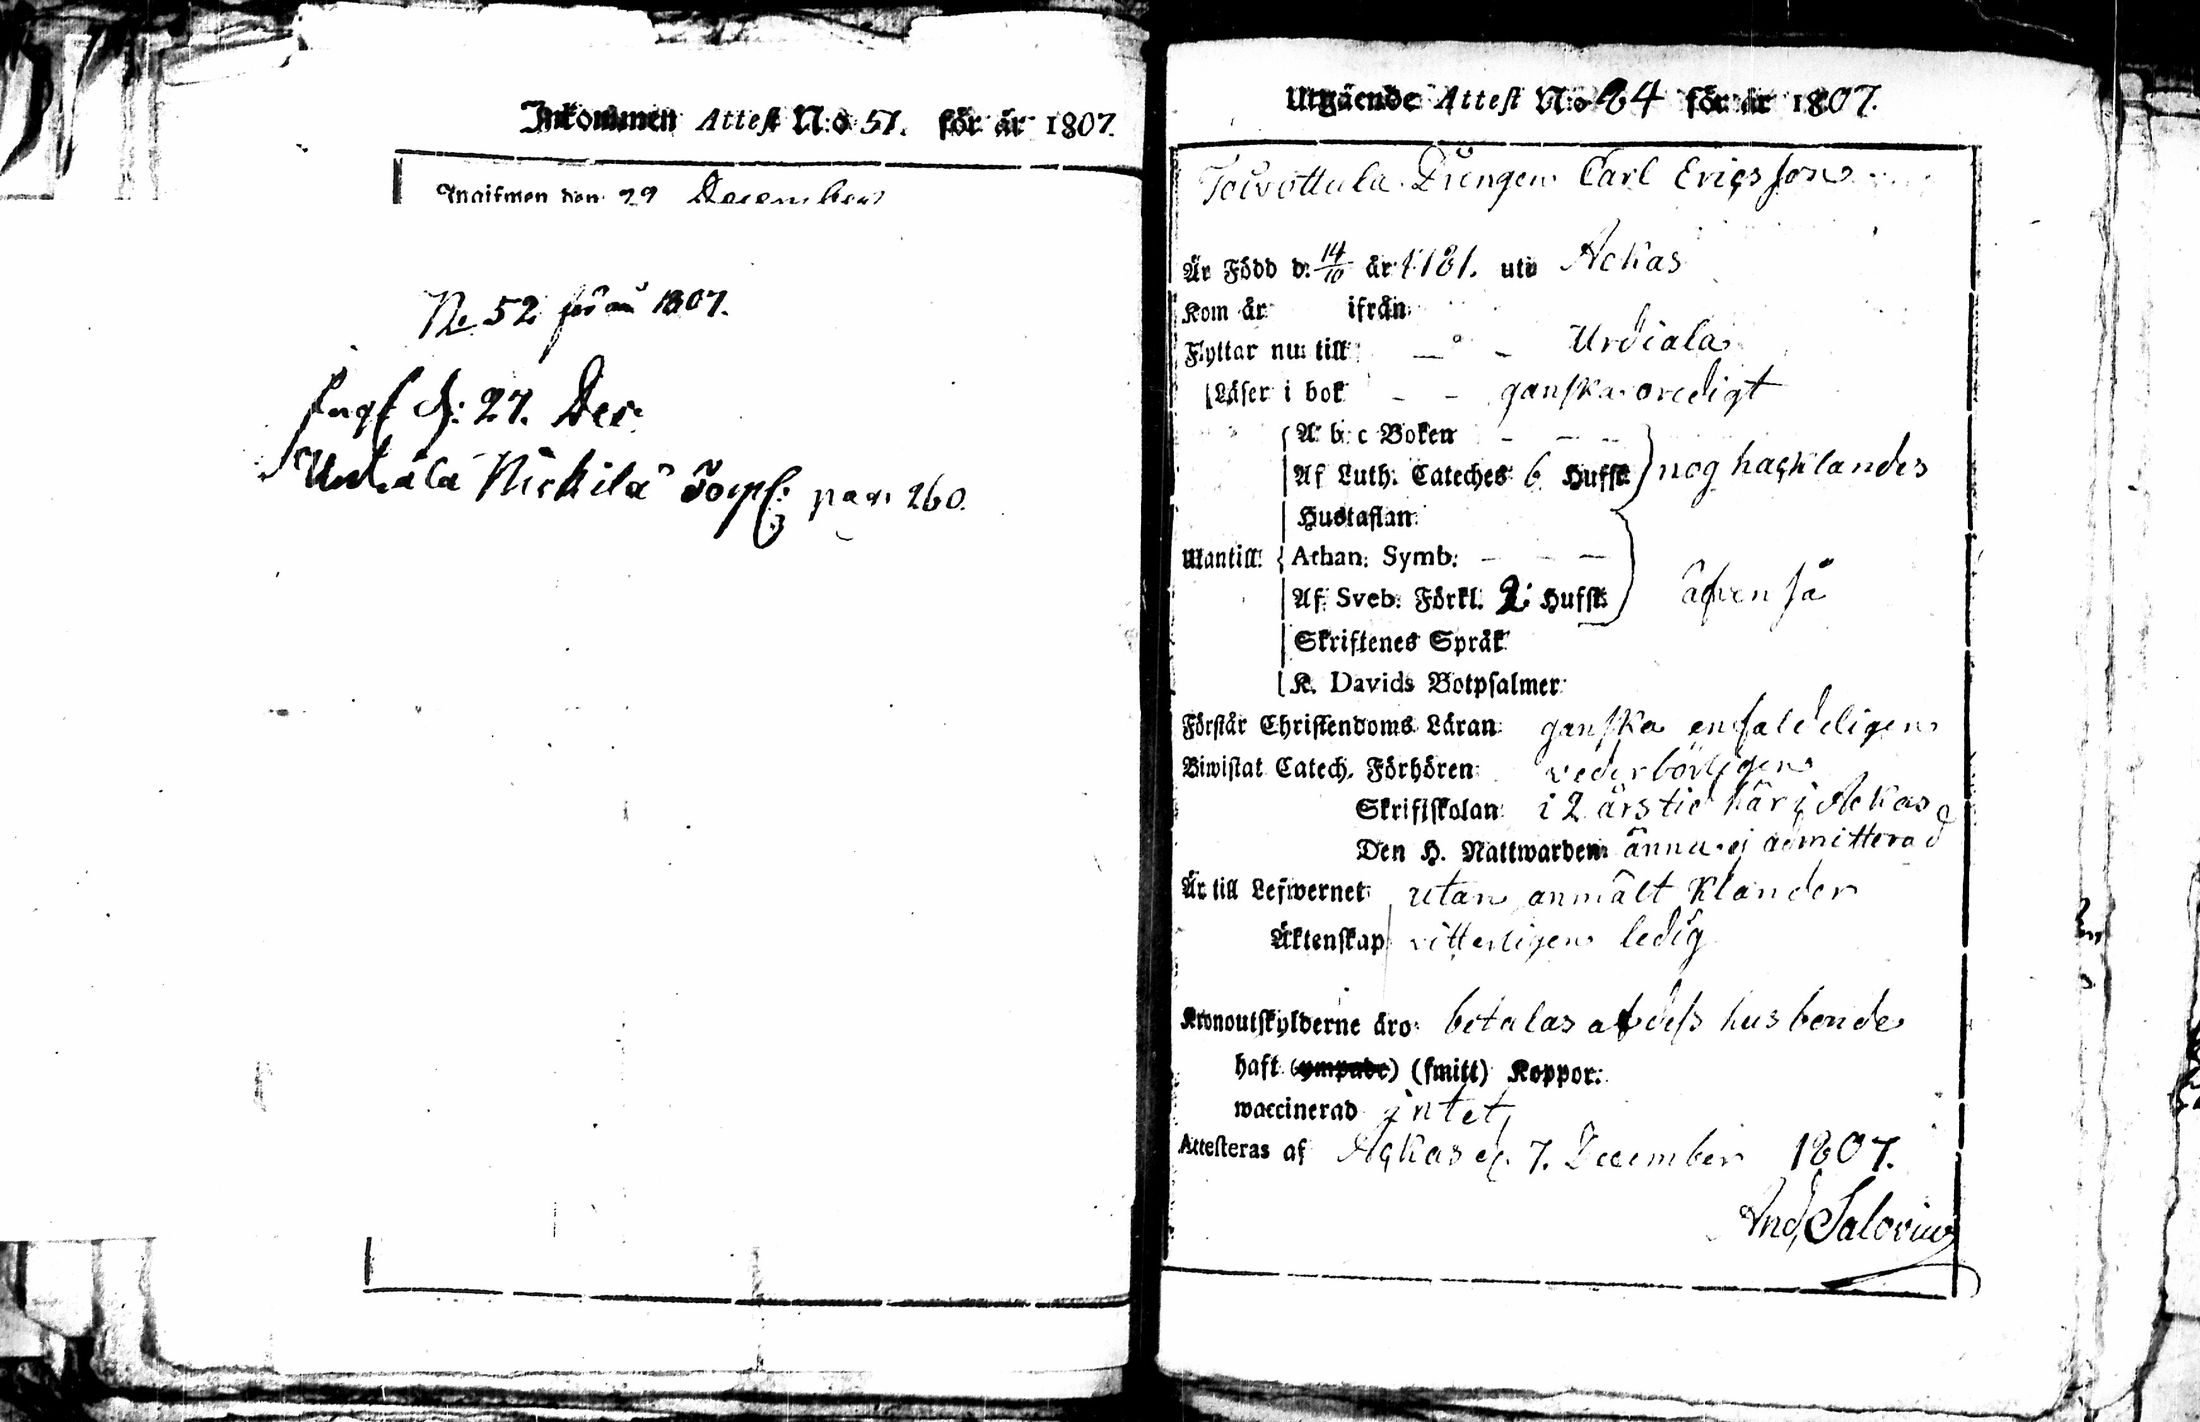 Inkommen Attest N:o 51. för år 1807.
den 29 December
No 52 för år 1807.
d: 27. Dec.
Urdiala Nickilä Torp: pag. 260.
Utgående Attest N:o 84 för år 1807.
Toivottula Drengen Carl Ericsson
Är Född d. 14/10 år 1781. uti Ackas
Kom år ifrån
Flyttar nu till — ° - Urdiala
Läser i bok - - ganska oredigt
A b c Boken - - -
Af Luth. Cateches 6 Hufst. nog hacklandes
Hustaflan
Utantill: Athan. Symb. - - -
Af Sveb. Förkl. 2 Hufst. äfven så
Skriftenes Språk
K. Davids Botpsalmer
Förstår Christendoms Läran ganska enfaldeligen
Biwistat Catech. Förhören wederbörligen
Skriftskolan i 2 års tid här i Ackas
Den H. Nattwarden ännu ej admitterad
Är till Lefwernet utan anmält klander
Äktenskap vitterligen ledig
Kronoutskylderne äro betalas af dess husbonde
haft (ympade) (smitt) Koppor:
waccinerad intet,
Attesteras af Ackas d. 7. December 1807.
And, Salovius